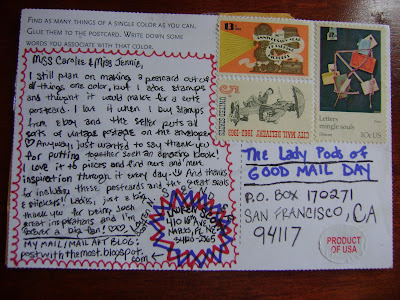 FIND AS MANY THINGS OF A SINGLE COLOR AS YOU CAN.
GLUE THEM TO THE POSTCARD. WRITE DOWN SOME
WORDS YOU ASSOCIATE WITH THAT COLOR.
MISS Carolee & Miss Jennie,
I still plan on making a postcard out of
all things one color, but I adore stamps
and thought it would make for a cute
postcard. I love it when I buy stamps
from ebay and the seller puts all
sorts of vintage postage on the envelope.
Anyway, just wanted to say thank you
for putting together such an amazing book!
Love it to pieces and find more and more
inspiration through it every day. And thanks
for including these postcards and the great seals
& stickers! Ladies, just a big
thank you for being such
great inspirations and I'm
forever a big fan!
NAPLES, FL
34120-2365
MY MAIL/MAIL ART BLOG:
postwiththemost.blogspot.com
13c
UNITED STATES
CITY MAIL DELIVERY 1863-1963
Letters
mingle souls
10c US
The Lady Pods of
GOOD MAIL DAY
P.O. BOX 170271
SAN FRANCISCO, CA
94117
PRODUCT
OF USA